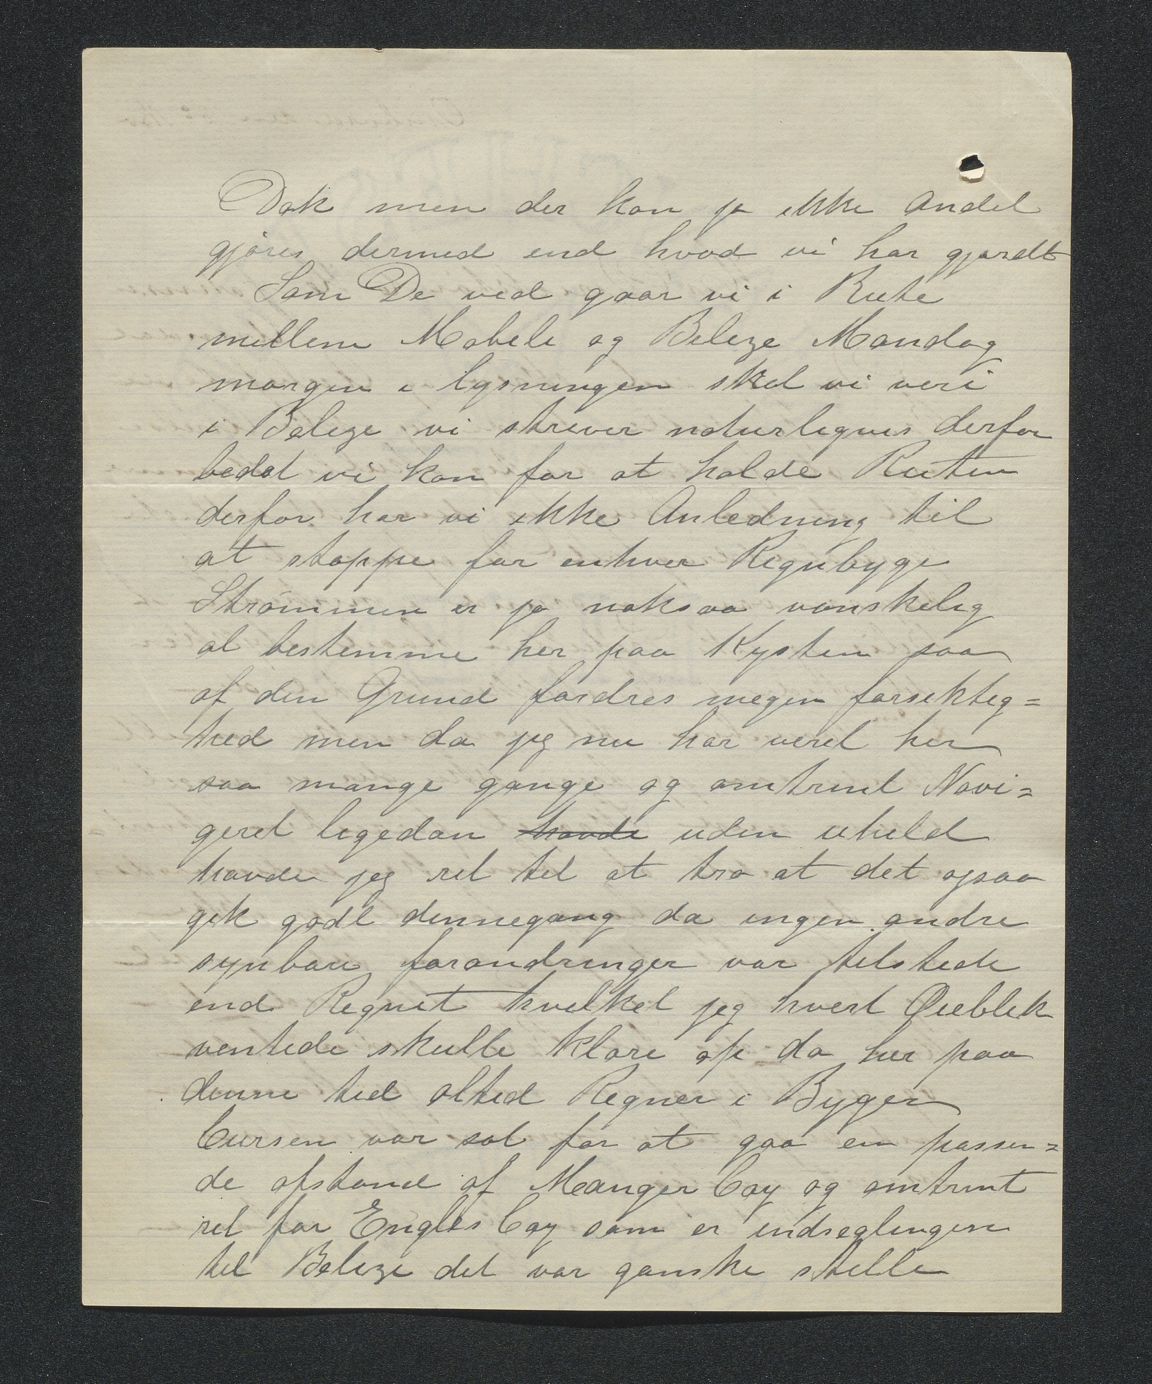 Dok men der kan jo ikke Andet
gjøres dermed end hvad vi har gjordt
Som De ved gaar vi i Rute
mellem Mobele og Beleze Mandag
morgen i lysningen skal vi veri
i Beleze vi strever naturligvis derfor
bedst vi kan for at holde Ruten
derfor har vi ikke Anledning til
at stoppe for enhver Regnbyge
Strømmen er jo noksaa vanskelig
at bestemme her paa Kysten saa
af den Grund fordres megen forsikteg=
hed men da jeg nu har veret her
saa mange gange og omtrent Navi=
geret legedan havde uden uheld
havde jeg ret tel at tro at det ogsaa
gek godt dennegang da ingen andre
synbare forandringer var telstede
end Regnet hvelket jeg hvert Øieblek
ventede skulle klare op da her paa
denne ted alted Regner i Byger
Cursen var sat for at gaa en passen=
de afstand af Manger Cay og omtrent
ret for Engles Cay som er indseglingen
tel Beleze det var ganske stelle